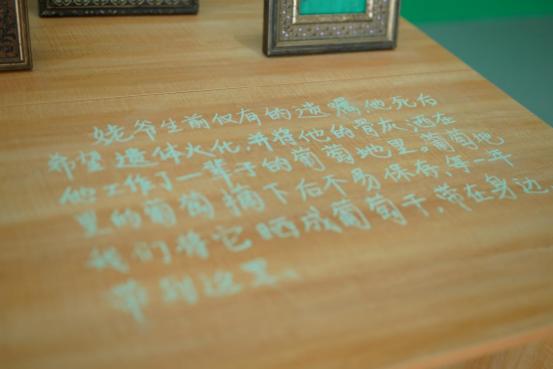 姥爷生前仅有的遗嘱,他死后
希望遗体火化,并将他的骨灰洒在
他工作了一辈子的葡萄地里。葡萄地
里的葡萄摘下后不易保存,每一年
我们将它晒成葡萄干,带在身边,
带到这里。